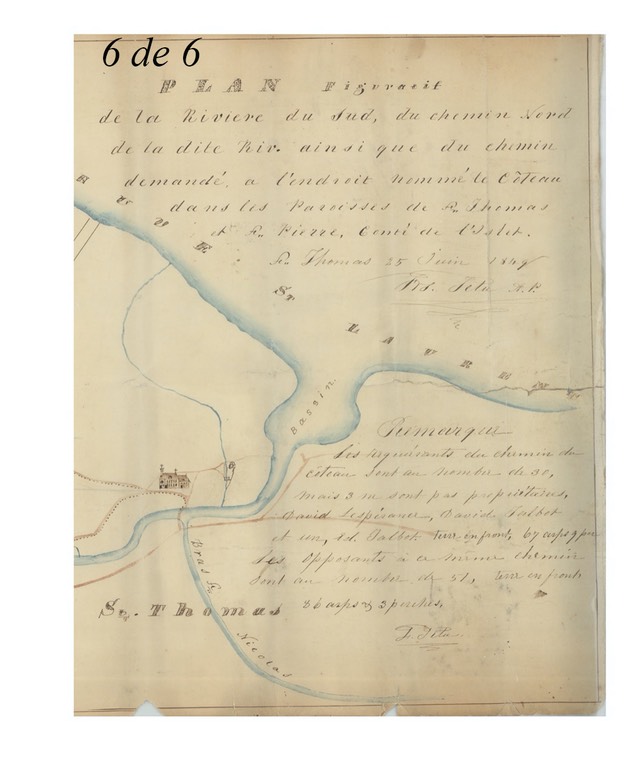 6 de 6
PLAN Figuratif
de la Riviere du Sud, du chemin Nord
de la dite Riv. ainsi que du chemin
demandé, a l'endroit nommé le Côteau
dans les Paroisses de St. Thomas
et St. Pierre, Comté de l'Islet.
St. Thomas 25 Juin 1849
F. Têtu A.P.
FLEUVE
St. LAURENT
Bassin.
Remarque
Les requérants du chemin du
côteau sont au nombre de 30,
mais 3 ne sont pas propriétaires,
David Lespérance, David Talbot
et un, Ed. Talbot terre en front, 67 arps 9 per
Les Opposants à ce même chemin
sont au nombre de 51, terre en front
86 arps & 3 perches.
F. Têtu
Bras St.
Nicolas
St. Thomas